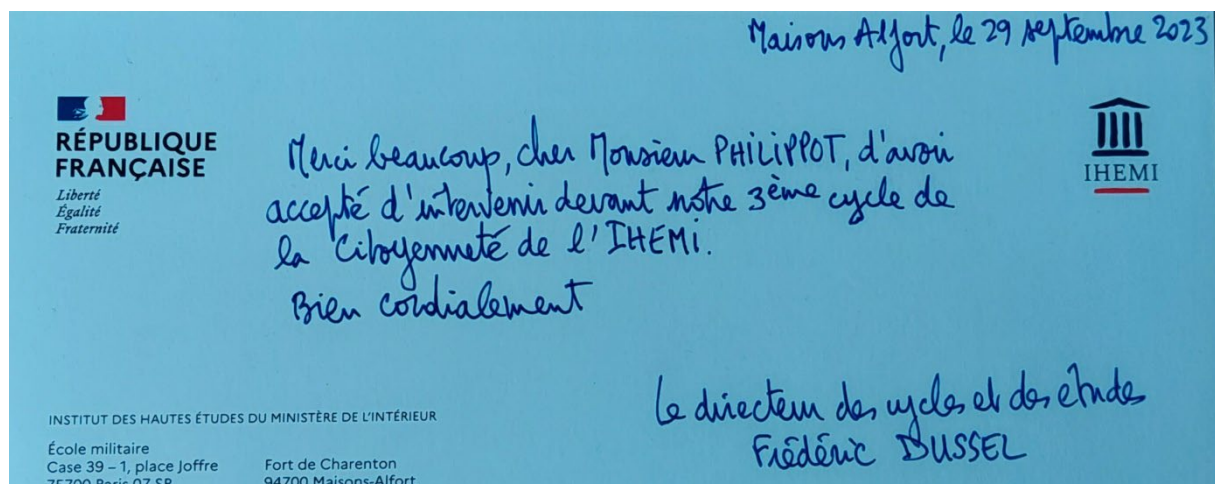 Maisons Alfort, le 29 septembre 2023
RÉPUBLIQUE
FRANÇAISE
Liberté
Égalité
Fraternité
IHEMI
Merci beaucoup, cher Monsieur PHILIPPOT, d'avoir
accepté d'intervenir devant notre 3ème cycle de
la Citoyenneté de l'IHEMI.
Bien cordialement
Le directeur des cycles et des études
Frédéric DUSSEL
INSTITUT DES HAUTES ÉTUDES DU MINISTÈRE DE L'INTÉRIEUR
École militaire
Case 39 – 1, place Joffre
75700 Paris 07 SP
Fort de Charenton
94700 Maisons-Alfort